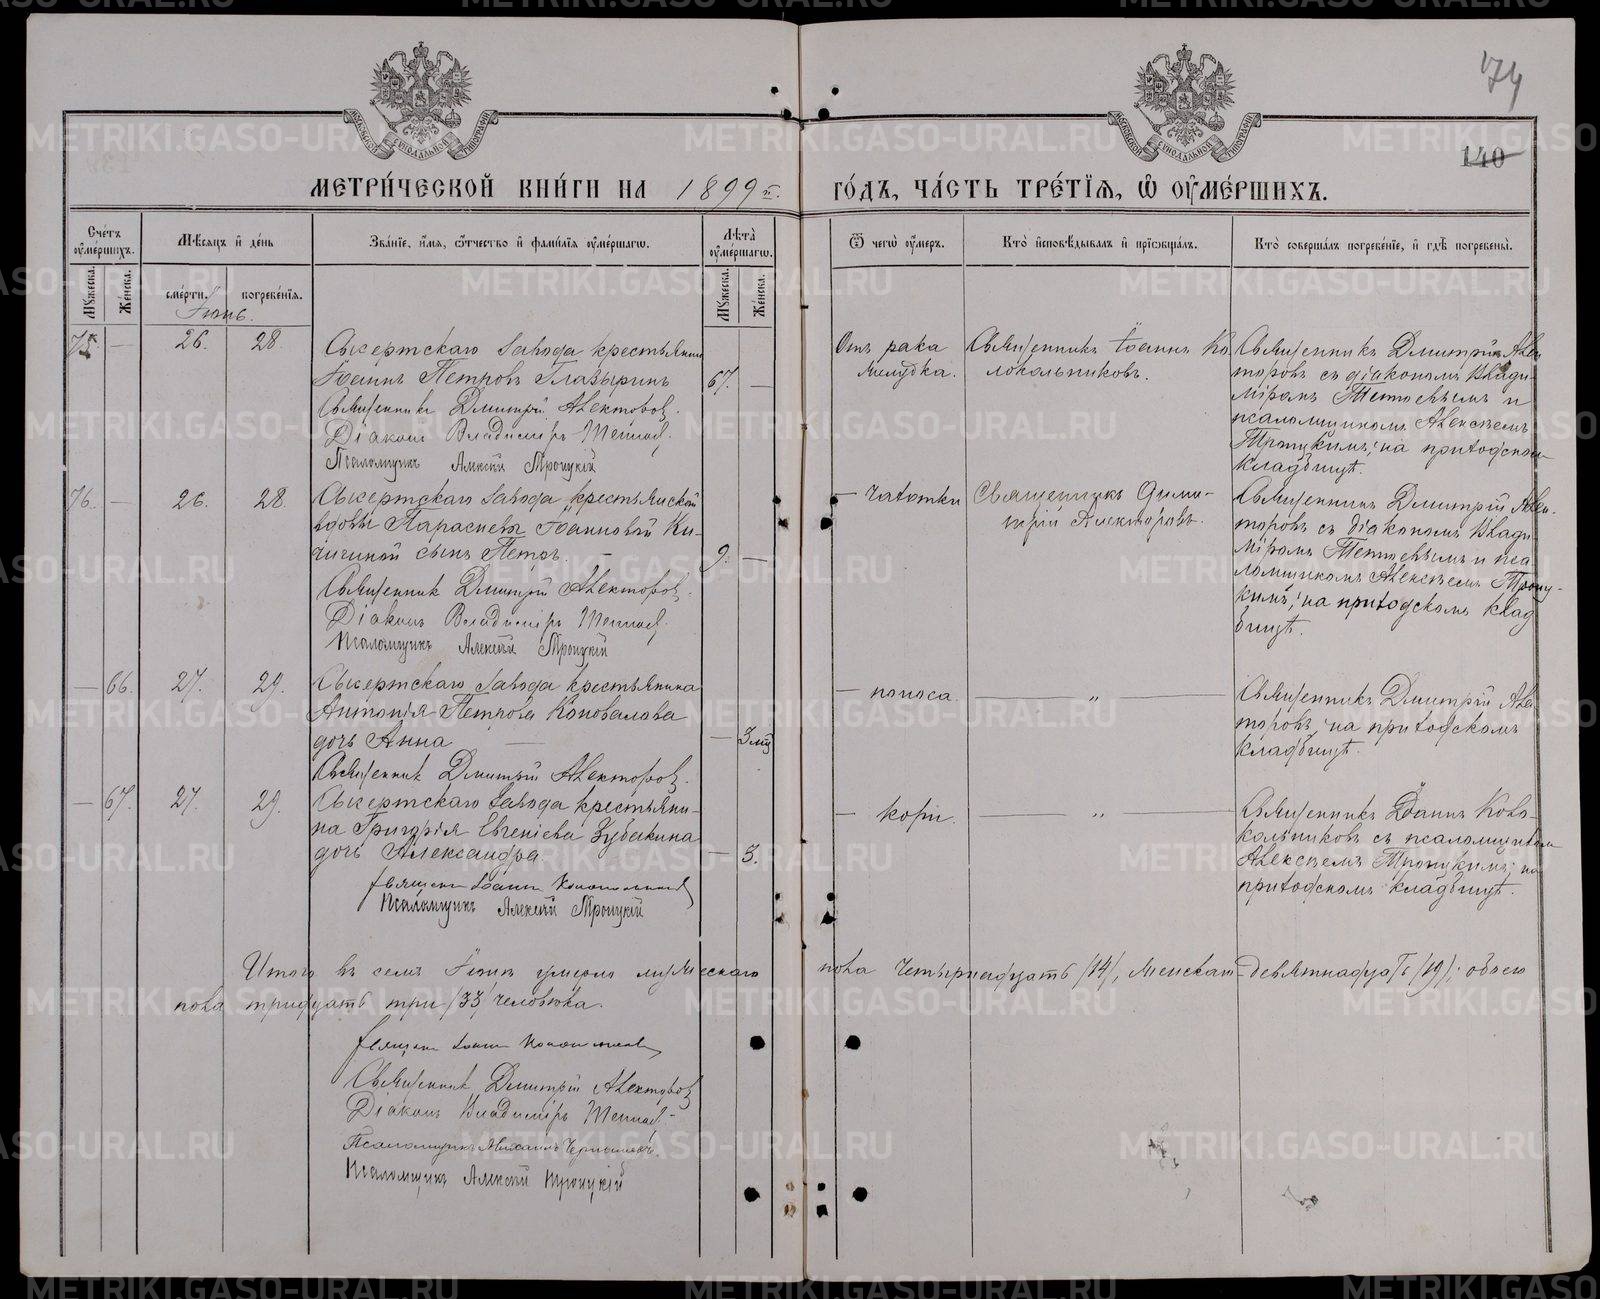 174
140
МЕТРИ́ЧЕСКОЙ КНИ́ГИ НА 1899 г. ГО́ДЪ, ЧА́СТЬ ТРЕ́ТІѦ, Ѡ ОУМЕ́РШИХЪ.
Сче́тъ оуме́ршихъ.
Му́жеска.
Же́нска.
Мѣ́сяцъ и де́нь
сме́рти.
погребе́нїя.
Зва́нїе, и́мя, ѻ́тчество и фами́лїя оуме́ршагѡ.
Лѣ́та оуме́ршагѡ.
Му́жеска.
Же́нска.
Ѿ чегѡ̀ оу́меръ.
Кто̀ исповѣ́дывалъ и прїѡбща́лъ.
Кто̀ соверша́лъ погребе́нїе, и гдѣ̀ погребены̀.
Іюнь.
75 — 26. 28.
Сысертскаго Завода крестьянинъ
Іоаннъ Петровъ Глазыринъ
67. —
Священникъ Дмитрій Алекторовъ.
Діаконъ Владиміръ
Псаломщикъ Алексѣй Троицкій
Отъ рака
желудка.
Священникъ Іоаннъ Ко
локольниковъ.
Священникъ Дмитрій Алек
торовъ съ діакономъ Влади-
міромъ и
псаломщикомъ Алексѣемъ
Троицкимъ; на приходскомъ
кладбищѣ.
76. — 26. 28.
Сысертскаго Завода крестьянской
вдовы Параскевы Іоанновой Ки-
чигиной сынъ Петръ. —
9. —
Священникъ Дмитрій Алекторовъ.
Діаконъ Владиміръ
Псаломщикъ Алексѣй Троицкій
— чахотки
Священникъ Дими-
трій Алекторовъ.
Священникъ Дмитрій Алек-
торовъ съ діакономъ Влади
міромъ и пса
ломщикомъ Алексѣемъ Троиц-
кимъ; на приходскомъ клад
бищѣ.
— 66. 27. 29.
Сысертскаго Завода крестьянина
Антонія Петрова Коновалова
дочь Анна —
— 3 мц
Священникъ Дмитрій Алекторовъ.
— поноса. — „ —
Священникъ Дмитрій Алек
торовъ; на приходскомъ
кладбищѣ.
— 67. 27. 29.
Сысертскаго Завода крестьяни-
на Григорія Евгеніева Зубакина
дочь Александра.
— 3.
Священ. Іоаннъ Колокольниковъ
Псаломщикъ Алексѣй Троицкій
— кори. — „ —
Священникъ Іоаннъ Коло-
кольниковъ съ псаломщикомъ
Алексѣемъ Троицкимъ; на
приходскомъ кладбищѣ.
Итого въ семъ Іюнѣ умерло мужескаго пола четырнадцать /14/, женскаго — девятнадцать /19/; обоего
пола тридцать три /33/ человѣка.
Священ. Іоаннъ Колокольниковъ
Священникъ Дмитрій Алекторовъ
Діаконъ Владиміръ
Псаломщикъ Михаилъ
Псаломщикъ Алексѣй Троицкій
METRIKI.GASO-URAL.RU